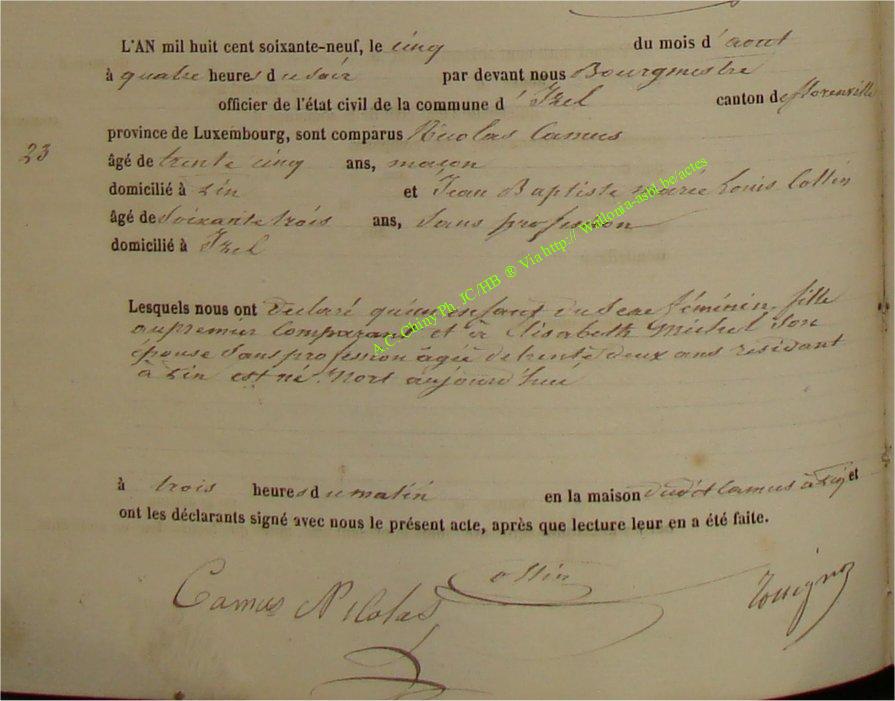 L'AN mil huit cent soixante-neuf, le cinq du mois d'aout
à quatre heures du soir par devant nous Bourgmestre
officier de l'état civil de la commune d'Izel canton de florenville
province de Luxembourg, sont comparus Nicolas Camus
23
âgé de trente cinq ans, maçon
domicilié à Pin et Jean Baptiste Marie Louis Collin
âgé de Soixante trois ans, Sans profession
domicilié à Izel
Lesquels nous ont déclaré qu'un enfant du Sexe féminin, fille
du premier Comparant et à Elisabeth Michel Son
épouse Sans profession âgée de trente deux ans résidant
à Pin est né Mort aujourd'hui
à trois heures du matin en la maison dudit Camus à Pin et
ont les déclarants signé avec nous le présent acte, après que lecture leur en a été faite.
Camus Nicolas
A.C. Chiny Ph. JC/HB ® Via http:// Wallonia-asbl.be/actes